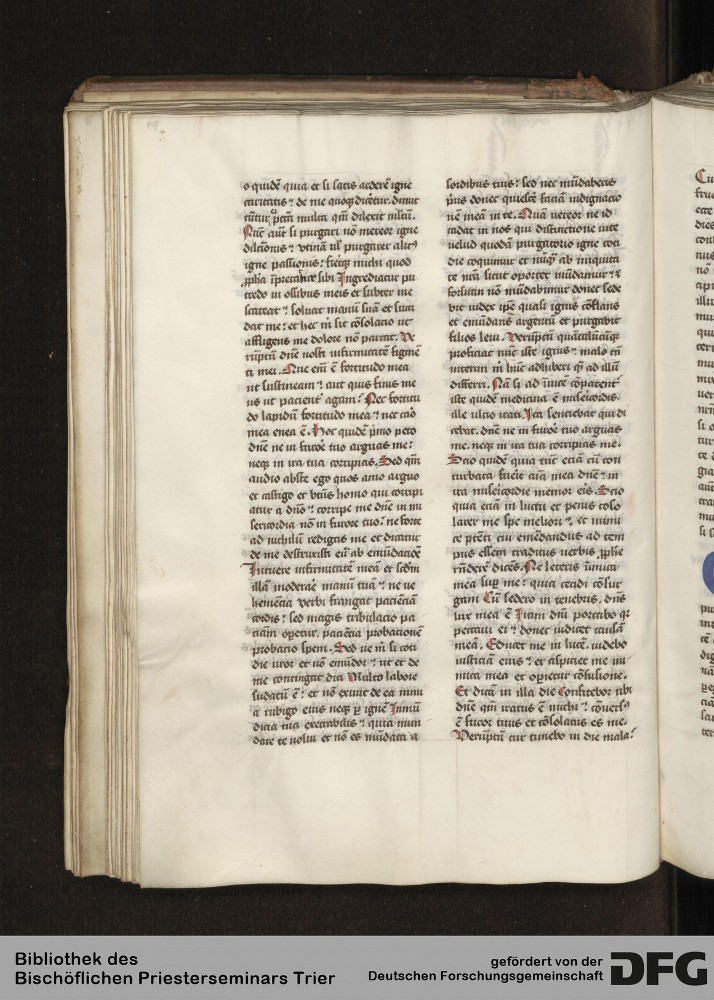 o quidē quia et si satis arderē igne
caritatis ⁊ de me quoqꝫ dicētur. dimit
tūtur ei pctā multa qm̄ dilexit mltū.
Nūc aūt si purgari nō mereor igne
dilcōnis ⁊ vtinā vl purgarer
igne passionis : fietqꝫ michi quod
ꝓpha sibi Ingrediatur pu
tredo in ossibus meis et subter me
scateat ⁊ soluat manū suā et succi
dat me : et hec m̄ sit cōsolacio ut
affligens me dolore nō parcat. Ve
rūptū dn̄e nosti infirmitatē figmē
ti mei. Que eni ē fortitudo mea
ut sustineam ⁊ aut quis finis me
us ut pacient̄ agam : Nec fortitu
do lapidū fortitudo mea ⁊ nec caō
mea enea ē. Hoc quidē pmo peto
dn̄e ne in furore tuo arguas me :
neqꝫ in ira tua corripias. Sed qm̄
audio abs te ego quos amo arguo
et castigo et btūs homo qui corripi
atur a dn̄o ⁊ corripe me dn̄e in mi
sericordia nō in furore tuo : ne forte
ad nichilū redigas me et dicatur
de me destruxisti eū ab emūdacōe
Intuere infirmitatē meā et scdm̄
illā moderare manū tuā ⁊ ne ve
hemēcia verbi frangat paciēciā
cordis : sed magis tribulacio pa
ciam opetur. paciēcia probacionē
probacio spem. Sed ve m̄ si coti
die uror et nō emūdor ⁊ ut et de
me contingat dici Multo labore
sudatū ē : et nō exiuit de ea nimi
a rubigo eius neqꝫ ꝑ ignē Inmū
dicia tua execrabilis ⁊ quia mun
dare te volui et nō es mūdata a
sordibus tuis : sed nec mūdaberis
pus donec quiescē faciā indignacio
nē meā in te. Quā vereor ne id
cadat in nos qui districtione vite
velud quodā purgatorio igne coti
die coquimur et nūqꝫ ab iniquita
te nrā sicut oportet mūdamur ⁊
forsitan nō mūdabimur donec sede
bit iudex ipe quasi ignis cōflans
et emūdans argentū et purgabit
filios leui. Verūptū quātūlūcūqꝫ
proficiat nūc iste ignis ⁊ malo tn̄
interim m̄ hūc adhiberi qꝫ ad illū
differri. Nā si ad īuicē cōparent̄
iste quidē medicina ē misericordis.
ille ulcio irati. Ita senciebat qui di
cebat. dn̄e ne in furore tuo arguas
me. neqꝫ in ira tua corripias me.
Scio quidē quia tūc eciā cū con
turbata fuerit aīa mea dn̄e ⁊ in
ira misericordie memor eris. Scio
quia eciā in luctu et penis conso
laret me spe meliori ⁊, et inimi
ce ptēti ciu emēdandus ad tem
pus essem traditus verbis ꝓphe
rn̄derē dicēs. Ne leteris īimica
mea sup me : quia cecidi cōsur
gam Cū sedero in tenebris. dn̄s
lux mea ē Iram dn̄i portabo qꝛ
peccaui ei ⁊ donec iudicet causā
meā. Educet me in lucē. videbo
iusticiā eius ⁊ et aspiciet me ini
mica mea et opietur cōfusione.
Et dicā in illa die Confitebor tibi
dn̄e qm̄ iratus ē michi ⁊ cōuersꝰ
ē furor tuus et cōsolatus es me.
Verūptū cur timebo in die mala ?
Bibliothek des
Bischöflichen Priesterseminars Trier
gefördert von der
Deutschen Forschungsgemeinschaft
DFG